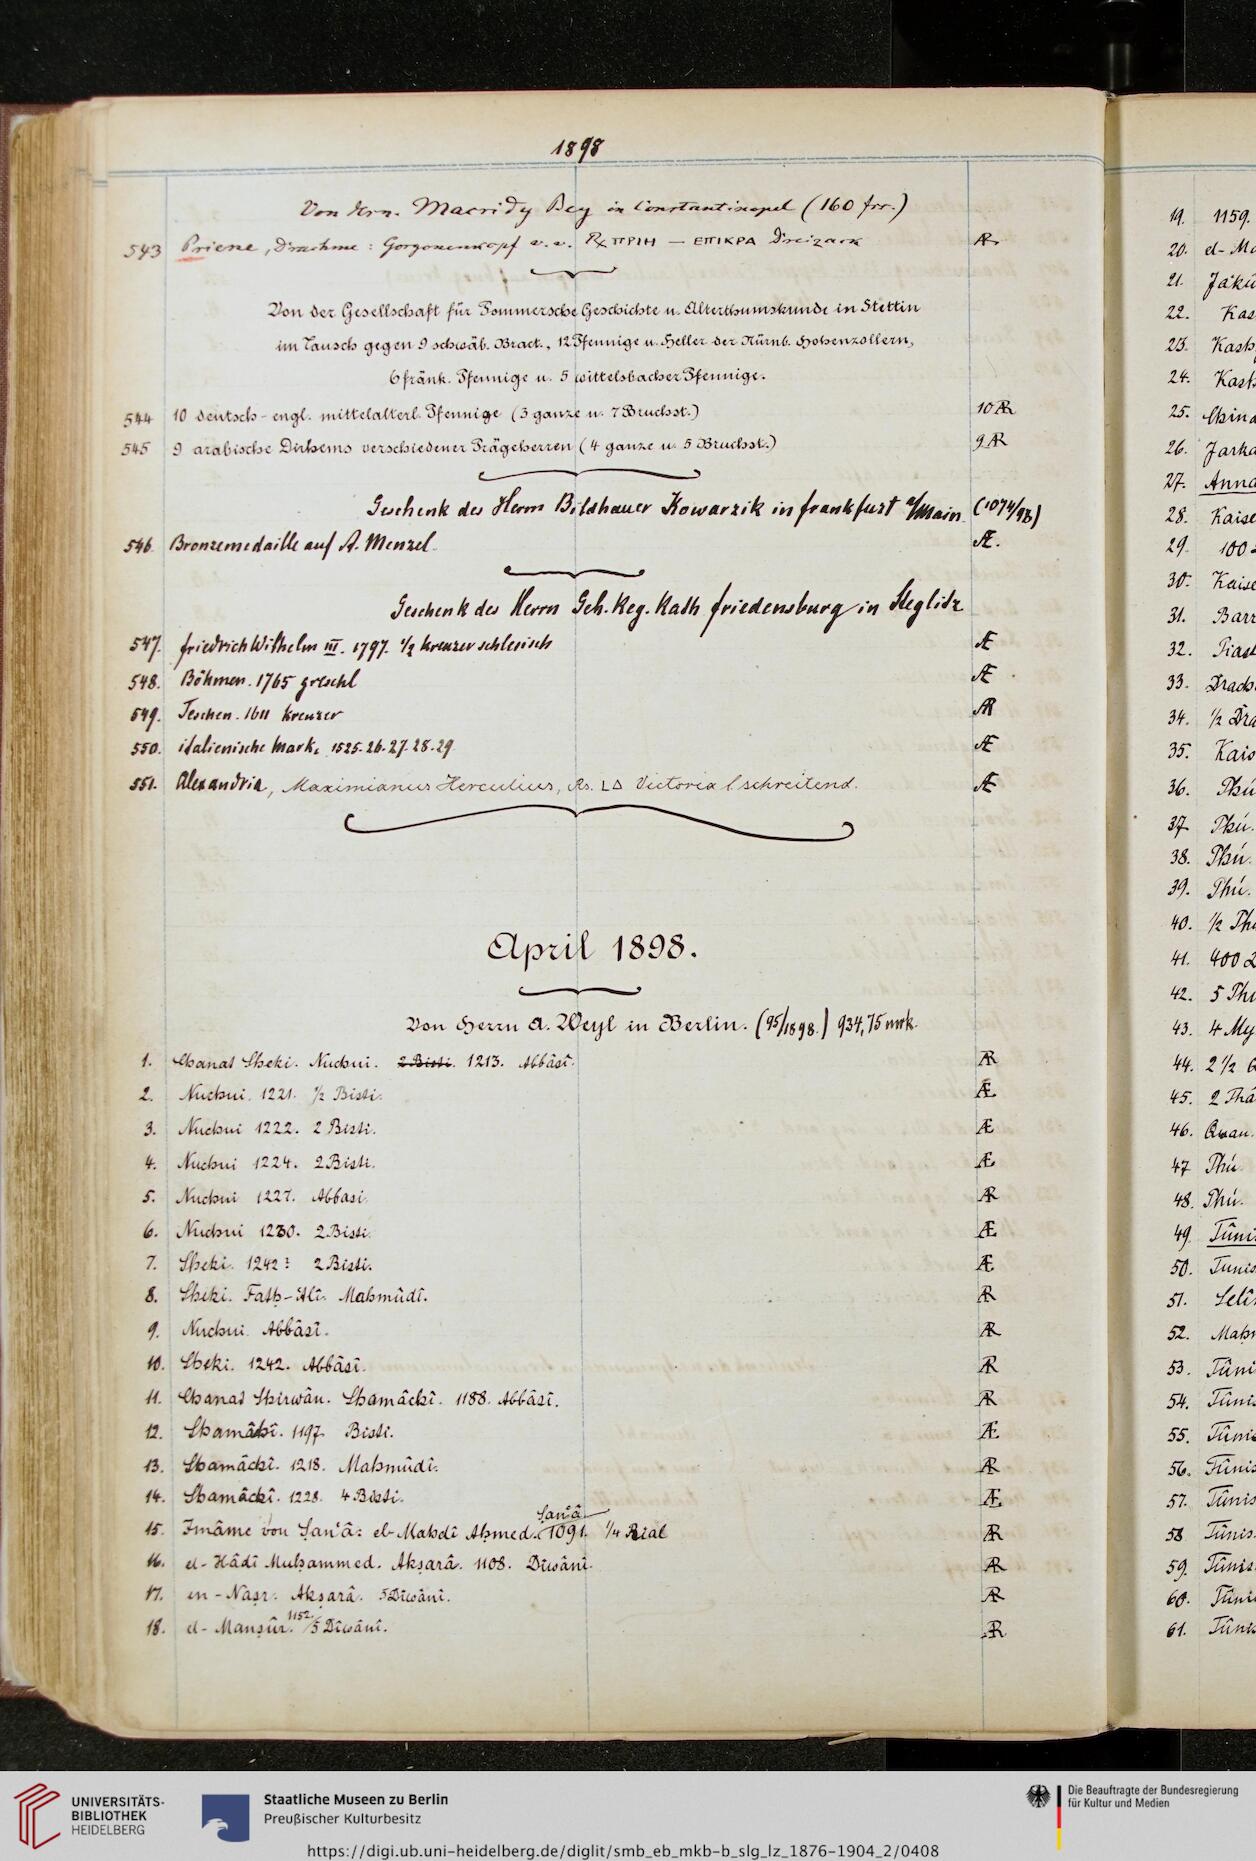 1898
Von Hrn. Macridy Bey in Constantinopel (160 frc.)
543 Priene, Drachme: Gorgonenkopf v. v. Rx ΠΡΙΗ — ΕΠΙΚΡΑ Dreizack AR
Von der Gesellschaft für Pommersche Geschichte u. Alterthumskunde in Stettin
im Tausch gegen 9 schwäb. Bract., 12 Pfennige u. Heller der Nürnb. Hohenzollern,
6 fränk. Pfennige u. 5 wittelsbacher Pfennige.
544 10 deutsch-engl. mittelalterl. Pfennige (3 ganze u. 7 Bruchst.) 10 AR
545 9 arabische Dirhems verschiedener Prägeherren (4 ganze u. 5 Bruchst.) 9 AR
Geschenk des Herrn Bildhauer Kowarzik in Frankfurt a/Main (1074/98)
546. Bronzemedaille auf A. Menzel. Æ.
Geschenk des Herrn Geh. Reg. Rath Friedensburg in Steglitz
547. Friedrich Wilhelm III. 1797. 1/2 Kreuzer schlesisch Æ
548. Böhmen. 1765 Greschl Æ.
549. Teschen. 1611 Kreuzer AR
550. italienische Mark. 1525.26.27.28.29. Æ
551. Alexandria, Maximianus Herculius, Rs. LΔ Victoria l schreitend. Æ
April 1898.
Von Herrn A. Weyl in Berlin. (95/1898.) 934,75 mrk.
1. Chanat Sheki. Nuchui. 2 Bisti. 1213. Abbâsî. AR
2. Nuchui. 1221. 1/2 Bisti. Æ
3. Nuchui 1222. 2 Bisti. Æ
4. Nuchui 1224. 2 Bisti. Æ
5. Nuchui 1227. Abbasi. AR
6. Nuchui 1230. 2 Bisti. Æ
7. Sheki. 1242? 2 Bisti. Æ
8. Sheki. Fatḥ-ʿAlî. Maḥmûdî. AR
9. Nuchui. Abbâsî. AR
10. Sheki. 1242. Abbâsî. AR
11. Chanat Shirwân. Shamâchî. 1188. Abbâsî. AR
12. Shamâchî. 1197. Bisti. Æ
13. Shamâchî. 1218. Maḥmûdî. AR
14. Shamâchî. 1228. 4 Bisti. Æ
Ṣanʿâ
15. Imâme von Ṣanʿâ: el-Mahdî Aḥmed. 1091. 1/4 Rial AR
16. el-Hâdî Muḥammed. Akṣarâ. 1108. Dîwânî. AR
17. en-Naṣr. Akṣarâ. 5 Dîwânî. AR
18. el-Manṣûr. 1152. /5 Dîwânî. AR
19. 1159.
20. el-Ma
21. Jaʿkû
22. Kas
23. Kash
24. Kash
25. China
26. Jarka
27. Anna
28. Kaise
29. 100
30. Kaise
31. Barr
32. Piast
33. Drach
34. 1/2 Dra
35. Kais
36. Phú
37. Phú.
38. Phú.
39. Phú.
40. 1/2 Thu
41. 400
42. 5 Phú
43. 4 My
44. 2 1/2
45. 2 Thá
46. Quan.
47 Phú
48. Phú.
49. Tûnis
50. Tunis
51. Selî
52. Maḥm
53. Tûni
54. Tûnis
55. Tûnis
56. Tûnis
57. Tûnis
58 Tûnis
59. Tûnis
60. Tûnis
61. Tûnis
UNIVERSITÄTS-
BIBLIOTHEK
HEIDELBERG
Staatliche Museen zu Berlin
Preußischer Kulturbesitz
Die Beauftragte der Bundesregierung
für Kultur und Medien
https://digi.ub.uni-heidelberg.de/diglit/smb_eb_mkb-b_slg_lz_1876-1904_2/0408